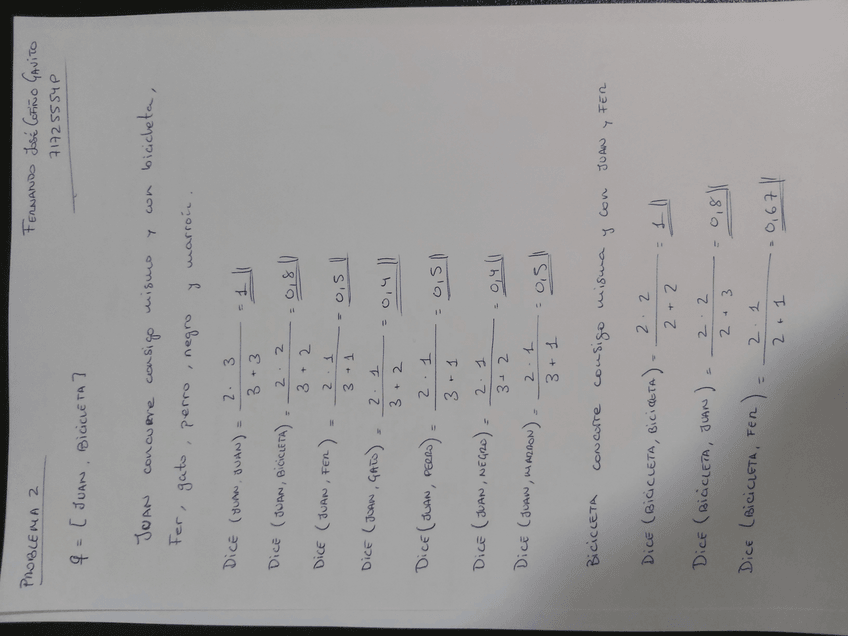 PROBLEMA 2
FERNANDO JOSÉ COFIÑO GAVITO
71725554P
q = [JUAN, BICICLETA]
JUAN concurre consigo mismo y con bicicleta,
Fer, gato, perro, negro y marrón.
DICE (JUAN, JUAN) = 2 · 3 / 3 + 3 = 1
DICE (JUAN, BICICLETA) = 2 · 2 / 3 + 2 = 0,8
DICE (JUAN, FER) = 2 · 1 / 3 + 1 = 0,5
DICE (JUAN, GATO) = 2 · 1 / 3 + 2 = 0,4
DICE (JUAN, PERRO) = 2 · 1 / 3 + 1 = 0,5
DICE (JUAN, NEGRO) = 2 · 1 / 3 + 2 = 0,4
DICE (JUAN, MARRON) = 2 · 1 / 3 + 1 = 0,5
BICICLETA concurre consigo misma y con JUAN y FER
DICE (BICICLETA, BICICLETA) = 2 · 2 / 2 + 2 = 1
DICE (BICICLETA, JUAN) = 2 · 2 / 2 + 3 = 0,8
DICE (BICICLETA, FER) = 2 · 1 / 2 + 1 = 0,67